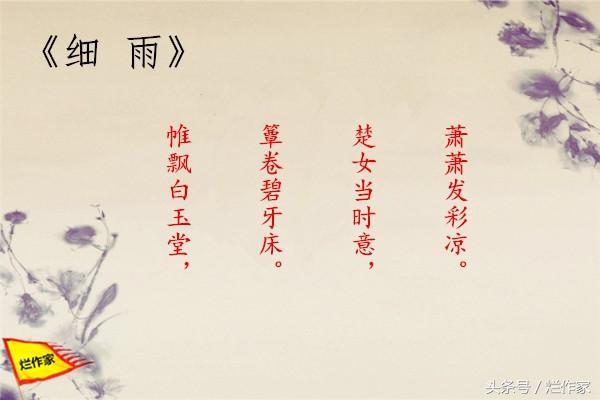 《细 雨》
帷飘白玉堂，
簟卷碧牙床。
楚女当时意，
萧萧发彩凉。
烂作家
头条号／烂作家